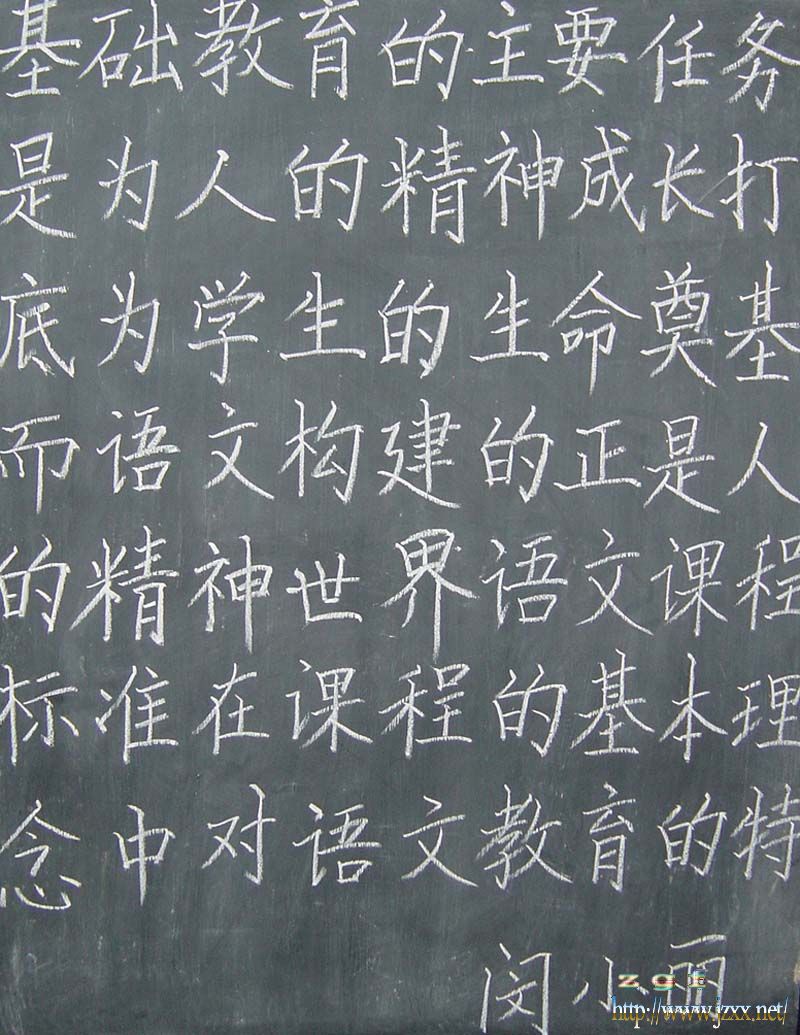 基础教育的主要任务
是为人的精神成长打
底为学生的生命奠基
而语文构建的正是人
的精神世界语文课程
标准在课程的基本理
念中对语文教育的特
闵小丽
zgf
http://www.jzxx.net/